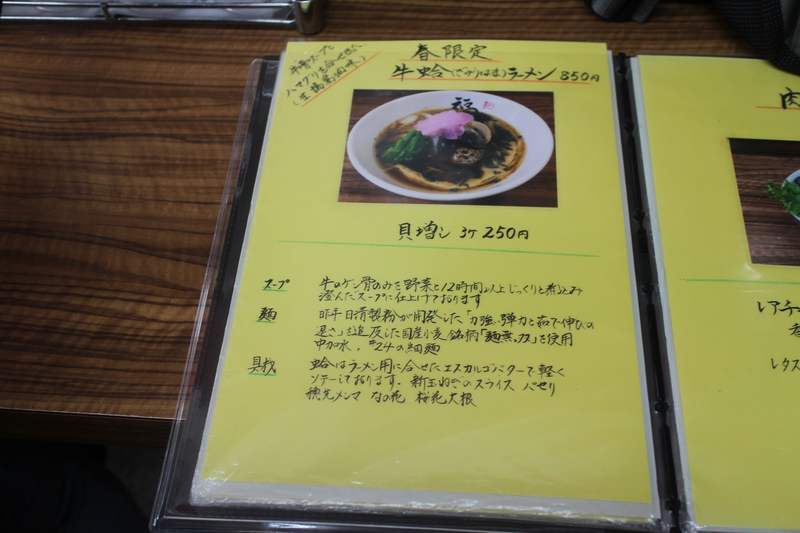 牛骨スープと
ハマグリを合せた
(生醤油味)
春限定
牛蛤(ぎゅうはま)ラーメン 850円
福
貝増し 3ケ 250円
スープ 牛のゲン骨のみを野菜と12時間以上じっくりと煮込み
澄んだスープに仕上げております
麺 昨年日清製粉が開発した「力強い弾力と茹で伸びの
遅さ」を追及した国産小麦銘柄「麺 」を使用
中加水、#24の細麺
具材 蛤はラーメン用に合せたエスカルゴバターで軽く
ソテーしております。新玉ねぎのスライス パセリ
穂先メンマ なの花 桜花大根
肉
レアチ
レタス